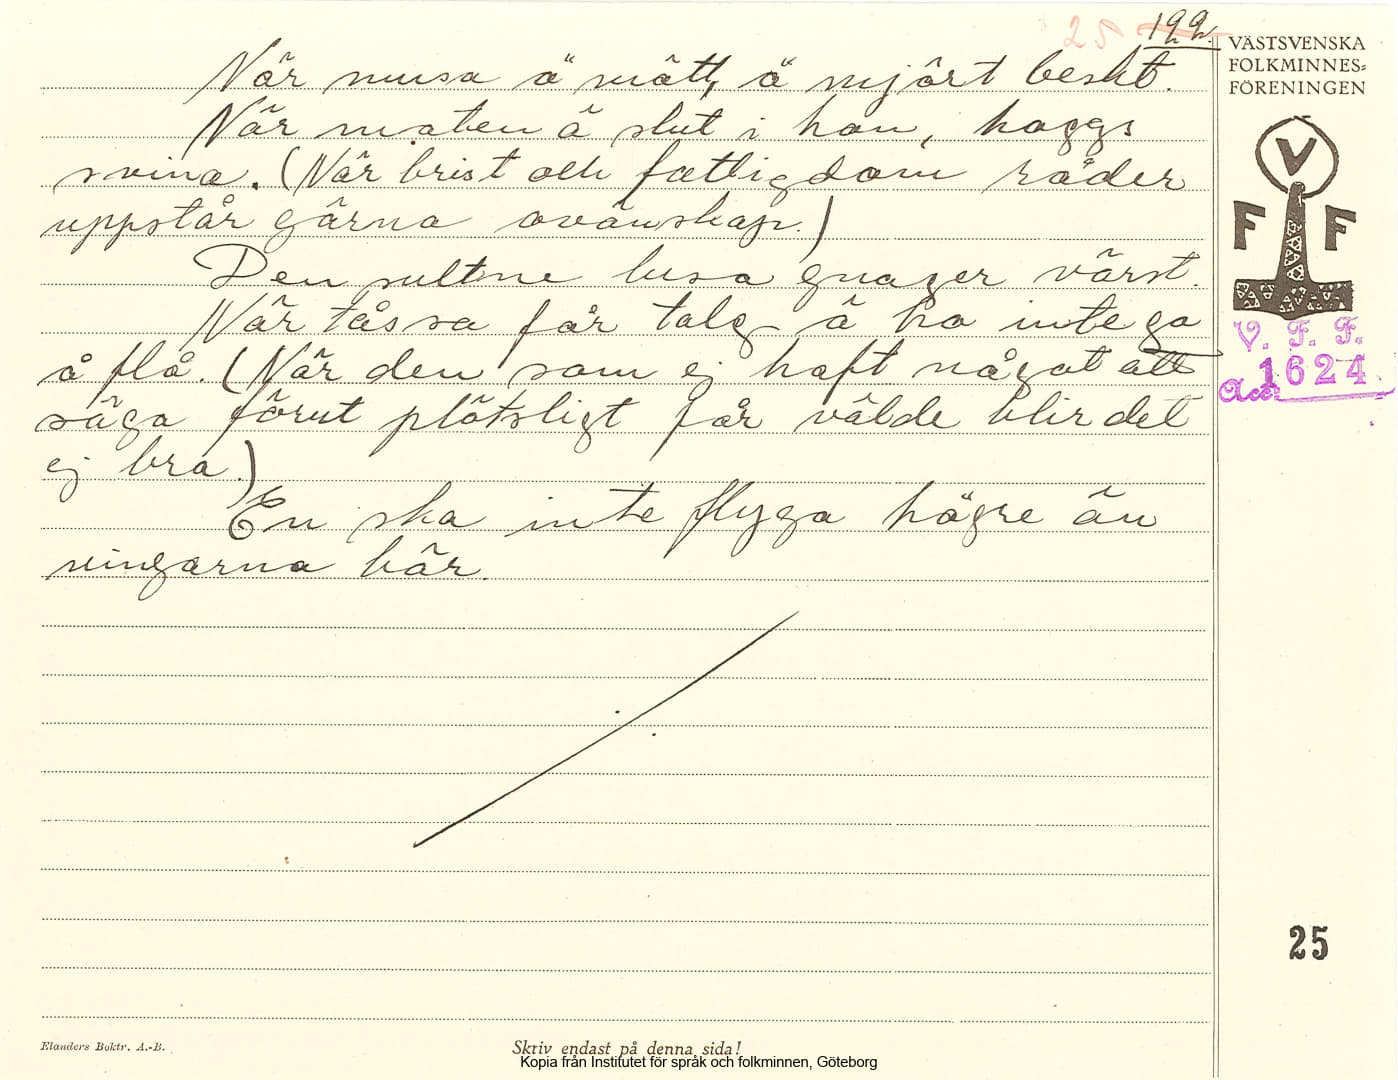 25 199.
VÄSTSVENSKA
FOLKMINNES=
FÖRENINGEN
V
F F
V. F. F.
Acc. 1624
När musa ä mätt, ä mjört beskt.
När maten ä slut i hon, haggs
svina. (När brist och fattigdom råder
uppstår gärna ovänskap.)
Den sultne lusa gnager värst.
När tåssa får talg ä ho inte go
å flå. (När den som ej haft något att
säga förut plötsligt får välde blir det
ej bra.)
En ska inte flyga högre än
vingarna bär.
25
Elanders Boktr. A.-B.
Skriv endast på denna sida!
Kopia från Institutet för språk och folkminnen, Göteborg